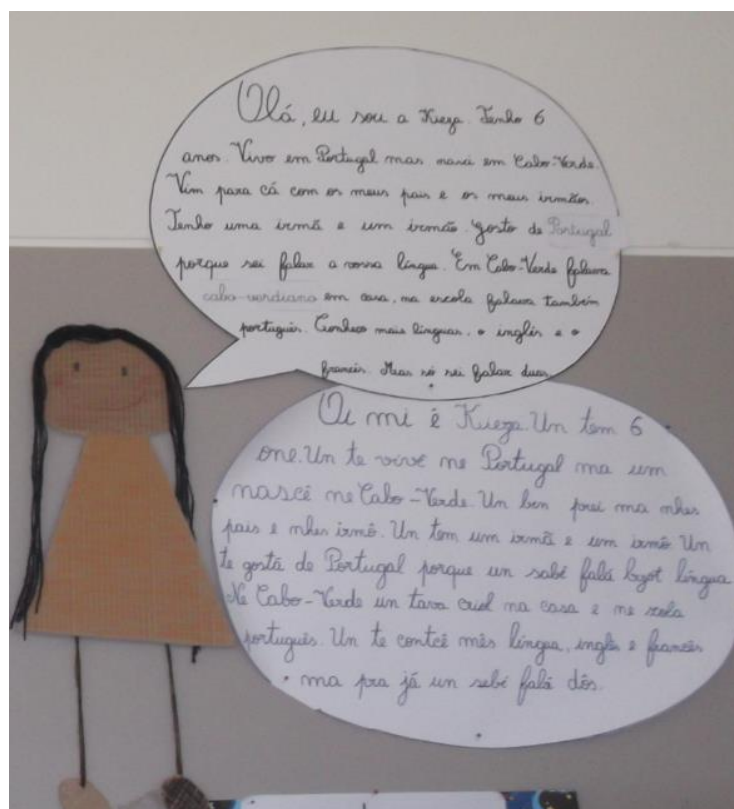 Olá, eu sou a Kieza. Tenho 6
anos. Vivo em Portugal mas nasci em Cabo-Verde.
Vim para cá com os meus pais e os meus irmãos.
Tenho uma irmã e um irmão. Gosto de Portugal
porque sei falar a vossa língua. Em Cabo-Verde falava
cabo-verdiano em casa, na escola falava também
português. Conheço mais línguas, o inglês e o
francês. Mas só sei falar duas.
Oi mi ê Kieza. Un tem 6
one. Un te vivê ne Portugal ma um
nascê ne Cabo-Verde. Un ben prei ma nhes
pais e nhes irmô. Un tem um irmã e um irmô Un
te gostá de Portugal porque un sabê falá língua
Ne Cabo-Verde un tava criol na casa e ne scola
português. Un te contcê mês língua, inglês e francês
ma pra já un sebê falá dôs.